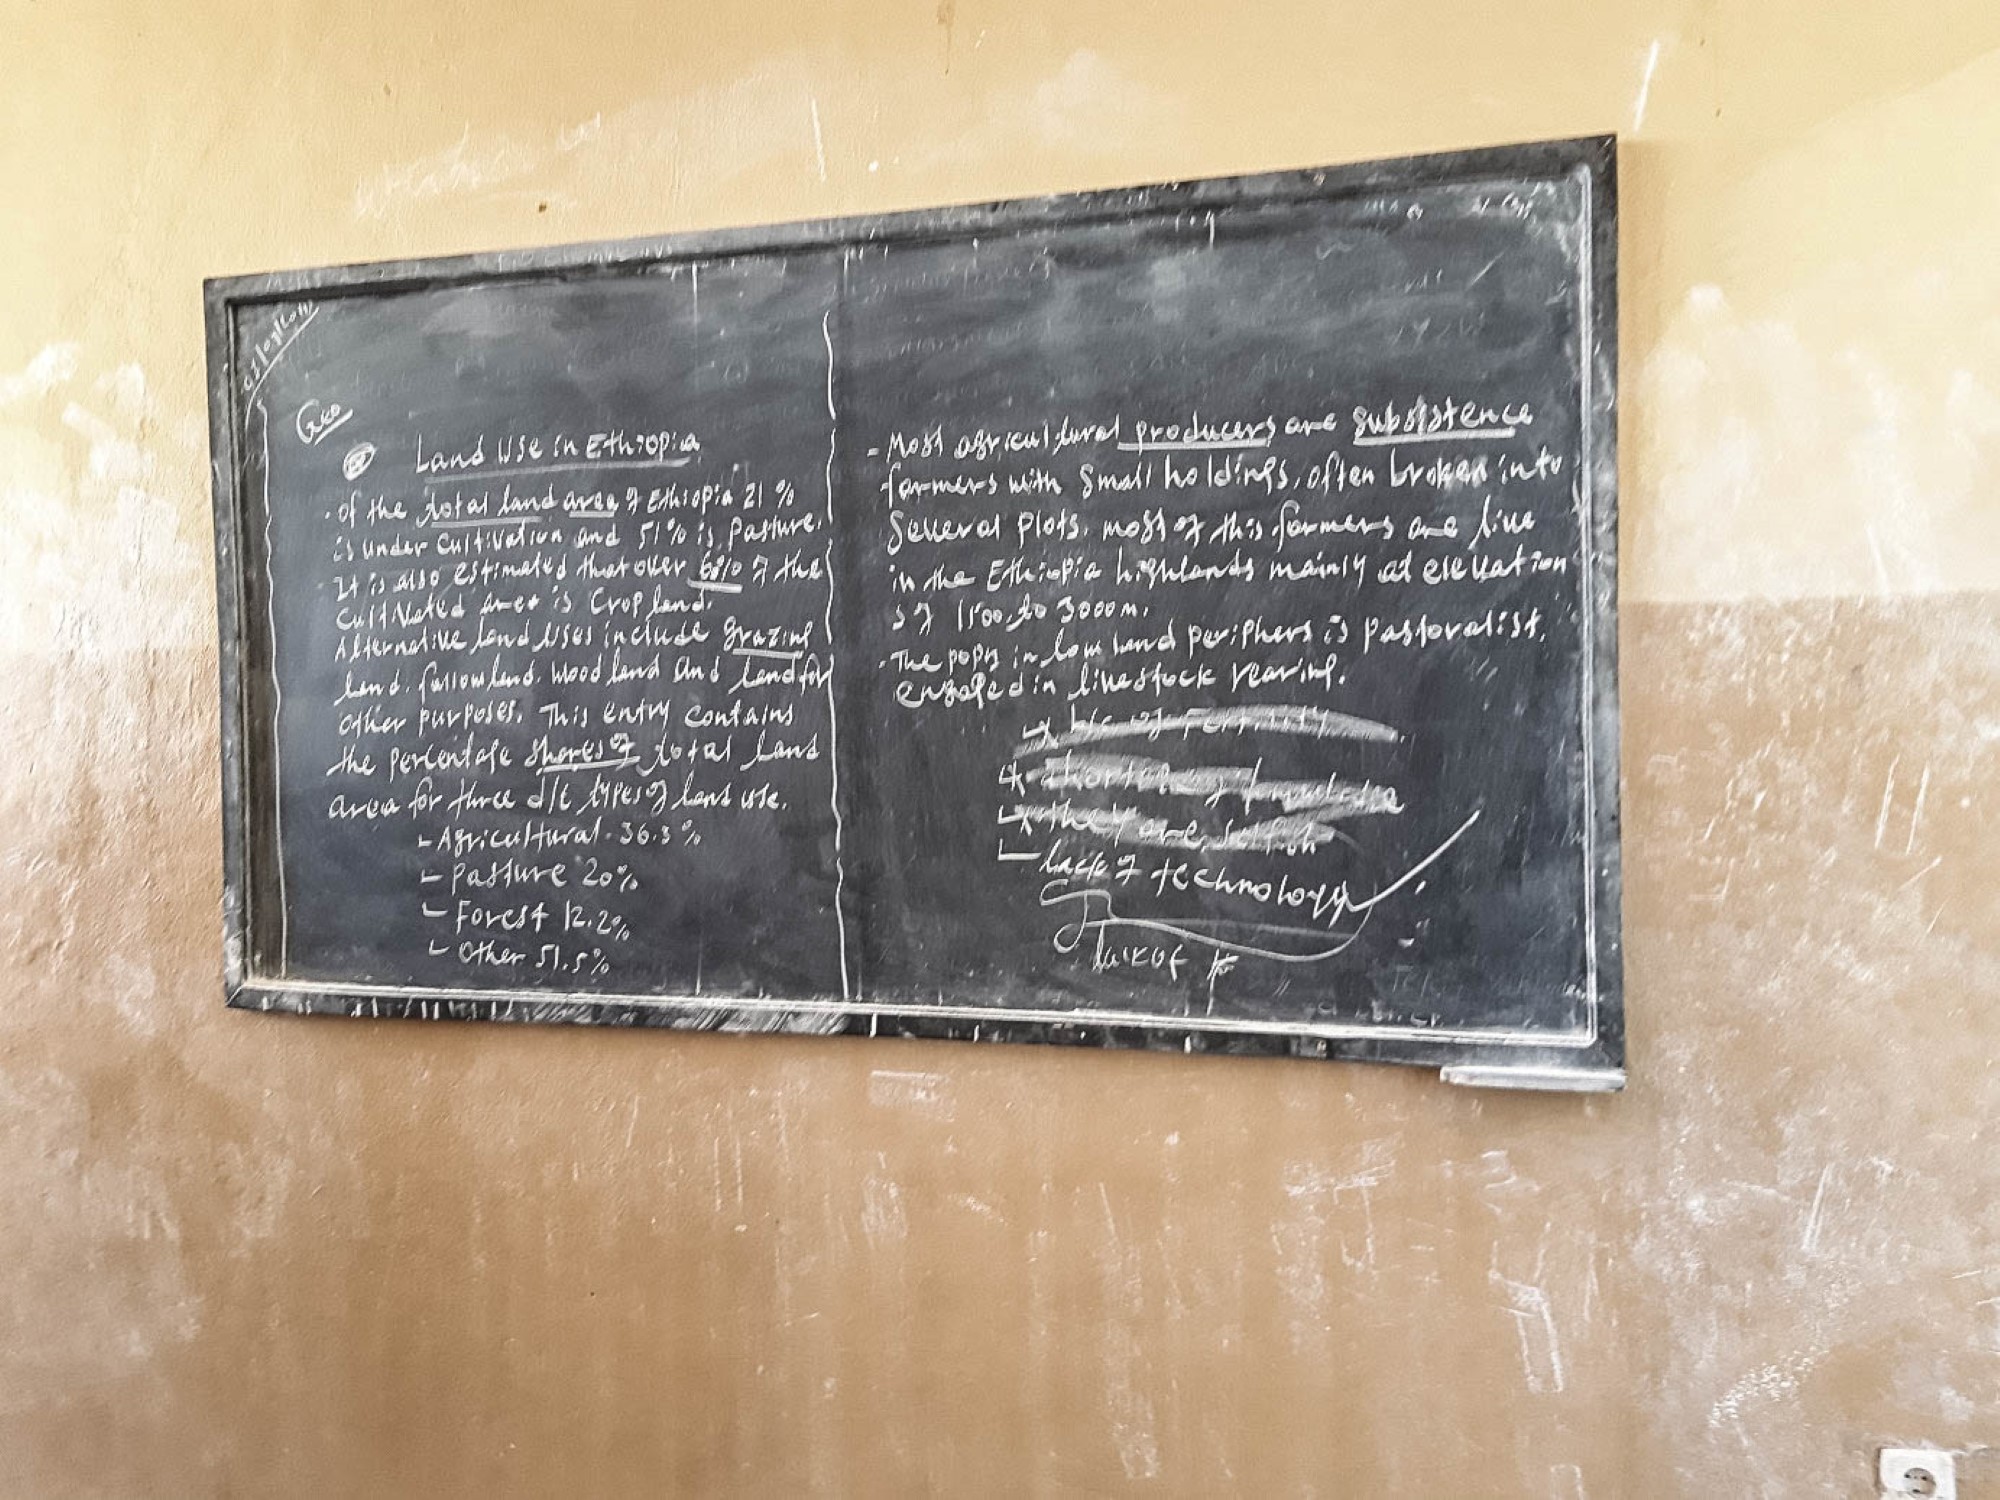 Geo
Land Use in Ethiopia
. of the total land area of Ethiopia 21 %
is under cultivation and 51% is pasture.
- It is also estimated that over 60% of the
cultivated area is Crop land.
Alternative land uses include grazing
land, fallow land, wood land and land for
other purposes. This entry contains
the percentage shares of total land
area for three d/t types of land use.
- Agricultural - 36.3 %
- Pasture 20%
- Forest 12.2%
- Other 51.5%
- Most agricultural producers are subsistence
farmers with small holdings, often broken into
Several plots. most of this farmers are live
in the Ethiopia highlands mainly at elevation
s of 1500 to 3000m.
- The popn in low land periphers is pastoralist,
engaged in livestock rearing.
they are selfish
- lack of technology